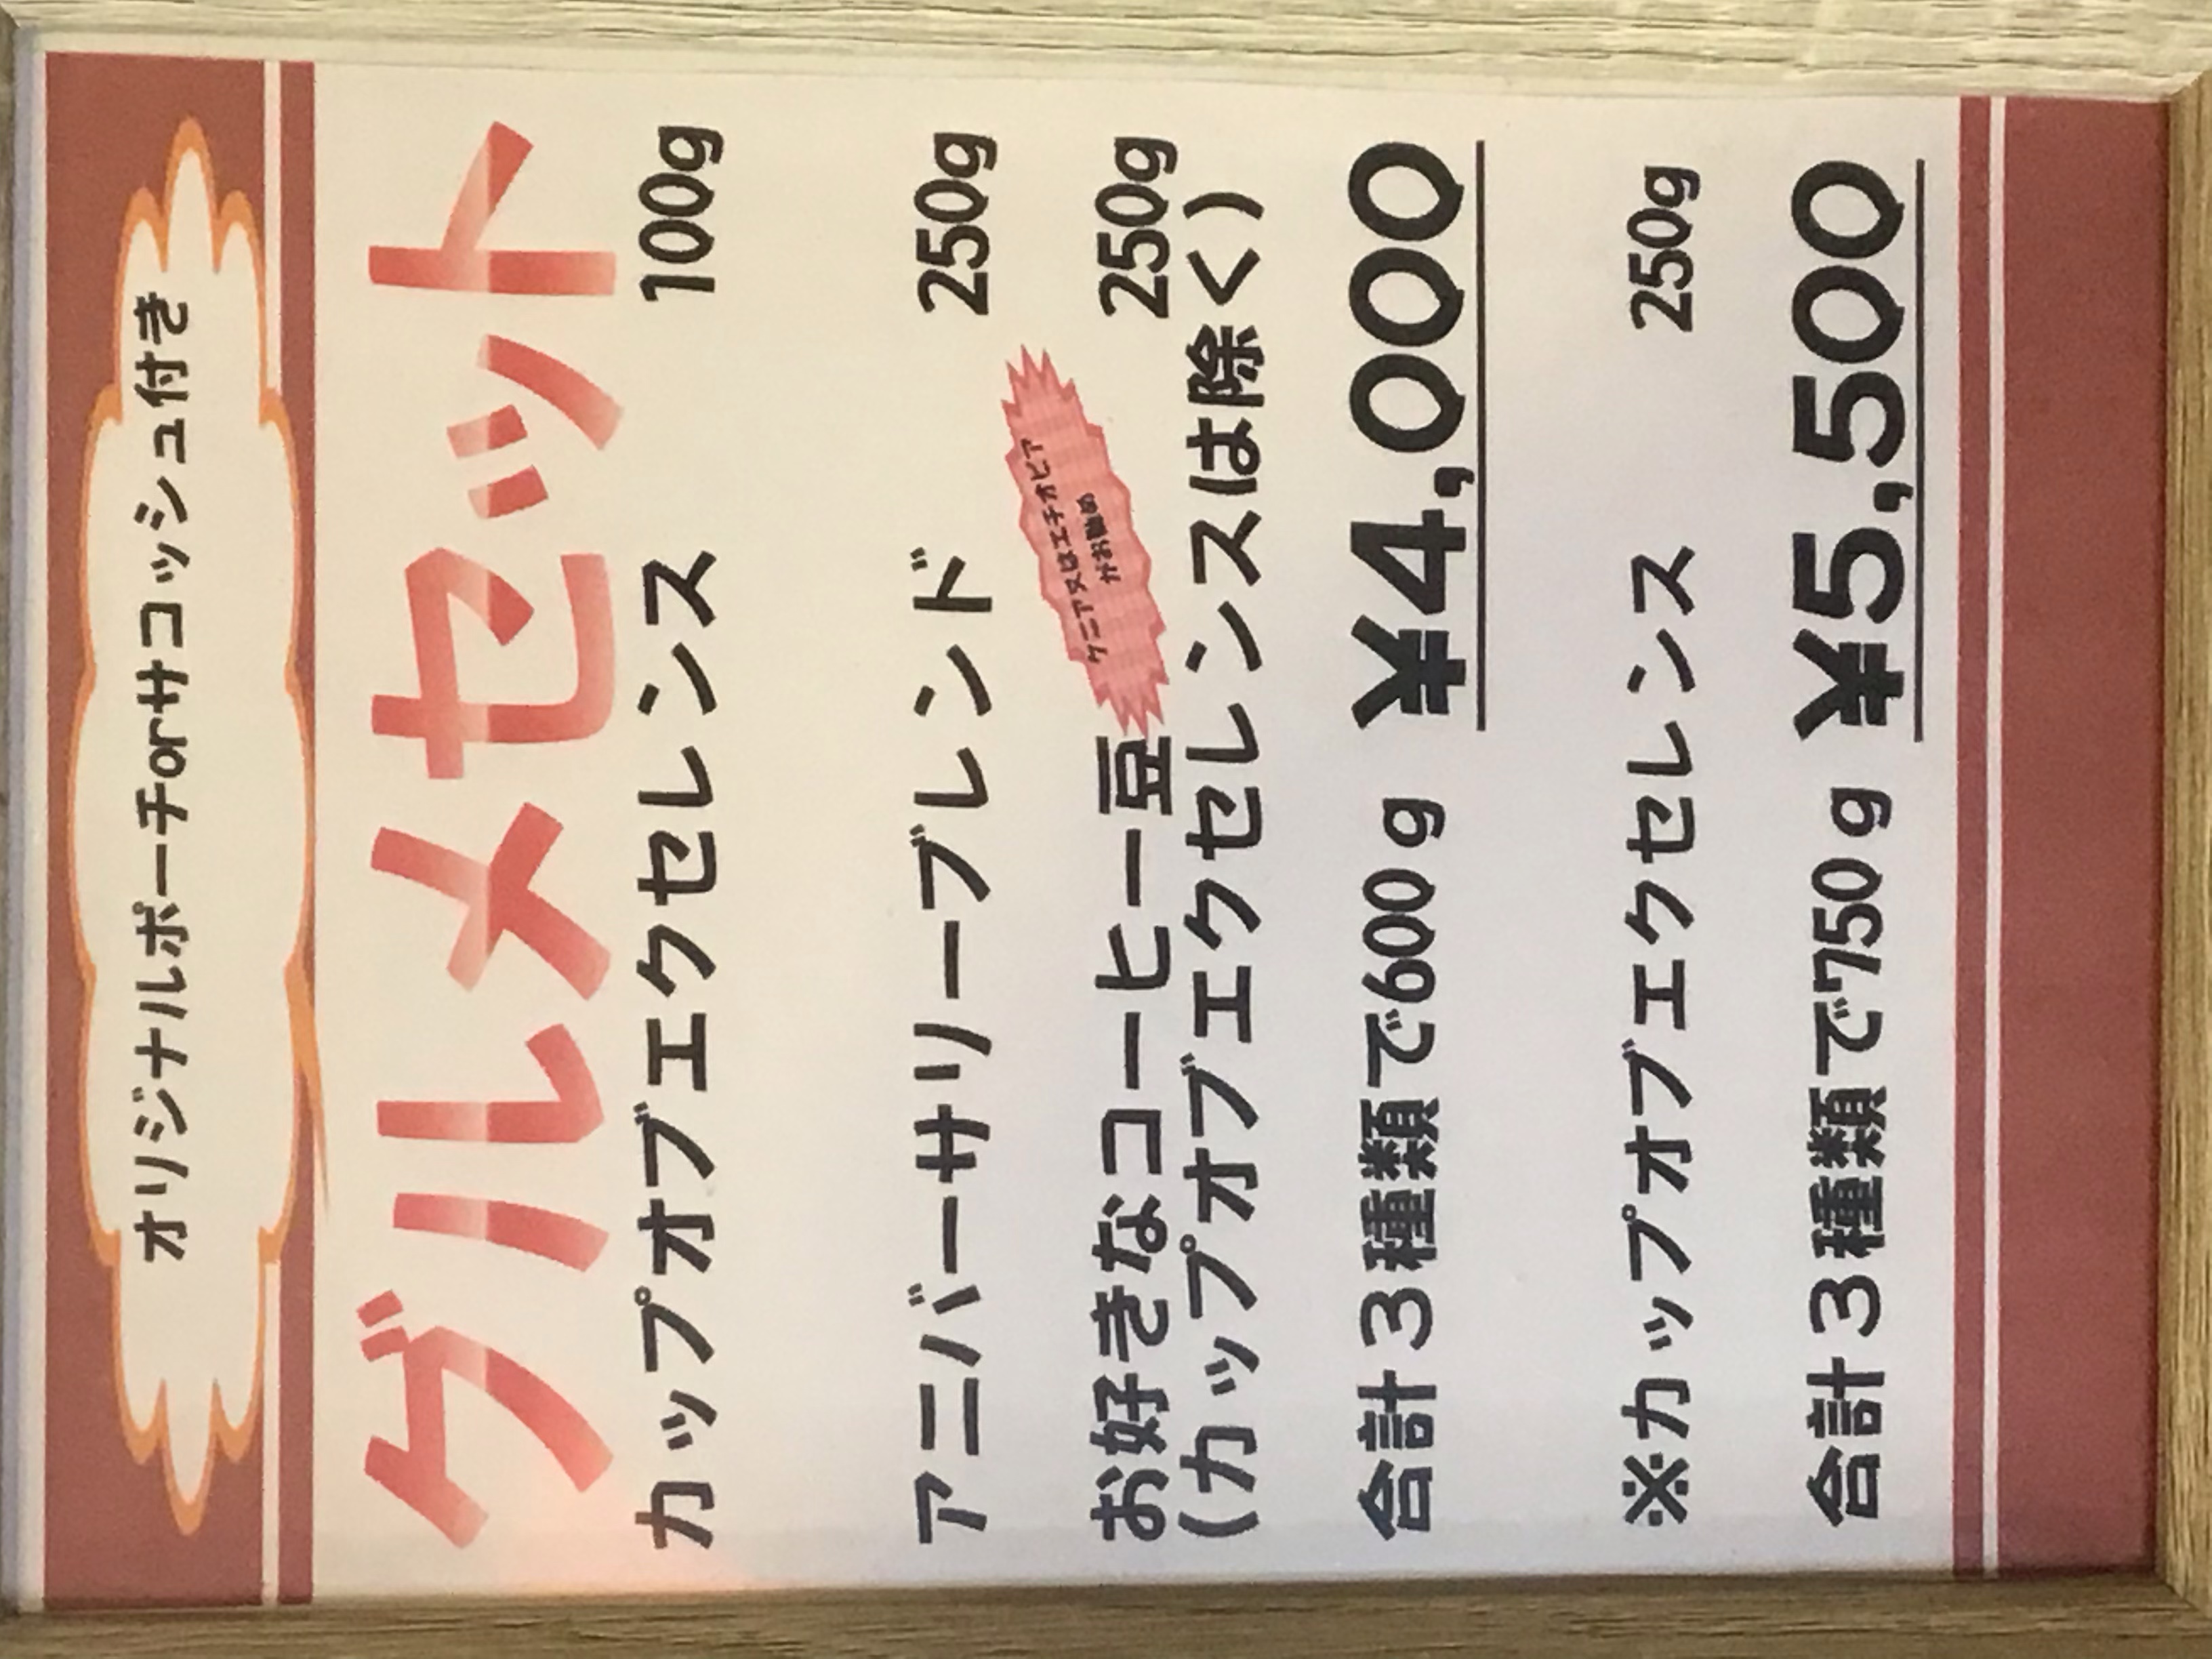 オリジナルポーチorサコッシュ付き
グルメセット
カップオブエクセレンス 100g
アニバーサリーブレンド 250g
ケニアAA又はエチオピア
がお勧め
お好きなコーヒー豆 250g
(カップオブエクセレンスは除く)
合計3種類で600g ¥4,000
※カップオブエクセレンス 250g
合計3種類で750g ¥5,500